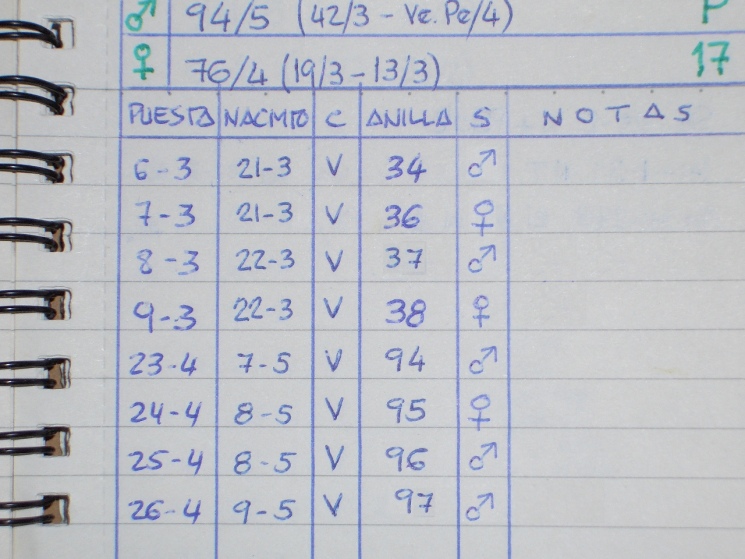 ♂ 94/5 (42/3 - Ve. Pe/4) P
♀ 76/4 (19/3-13/3) 17
PUESTA NACMTO C ANILLA S NOTAS
6-3 21-3 V 34 ♂
7-3 21-3 V 36 ♀
8-3 22-3 V 37 ♂
9-3 22-3 V 38 ♀
23-4 7-5 V 94 ♂
24-4 8-5 V 95 ♀
25-4 8-5 V 96 ♂
26-4 9-5 V 97 ♂